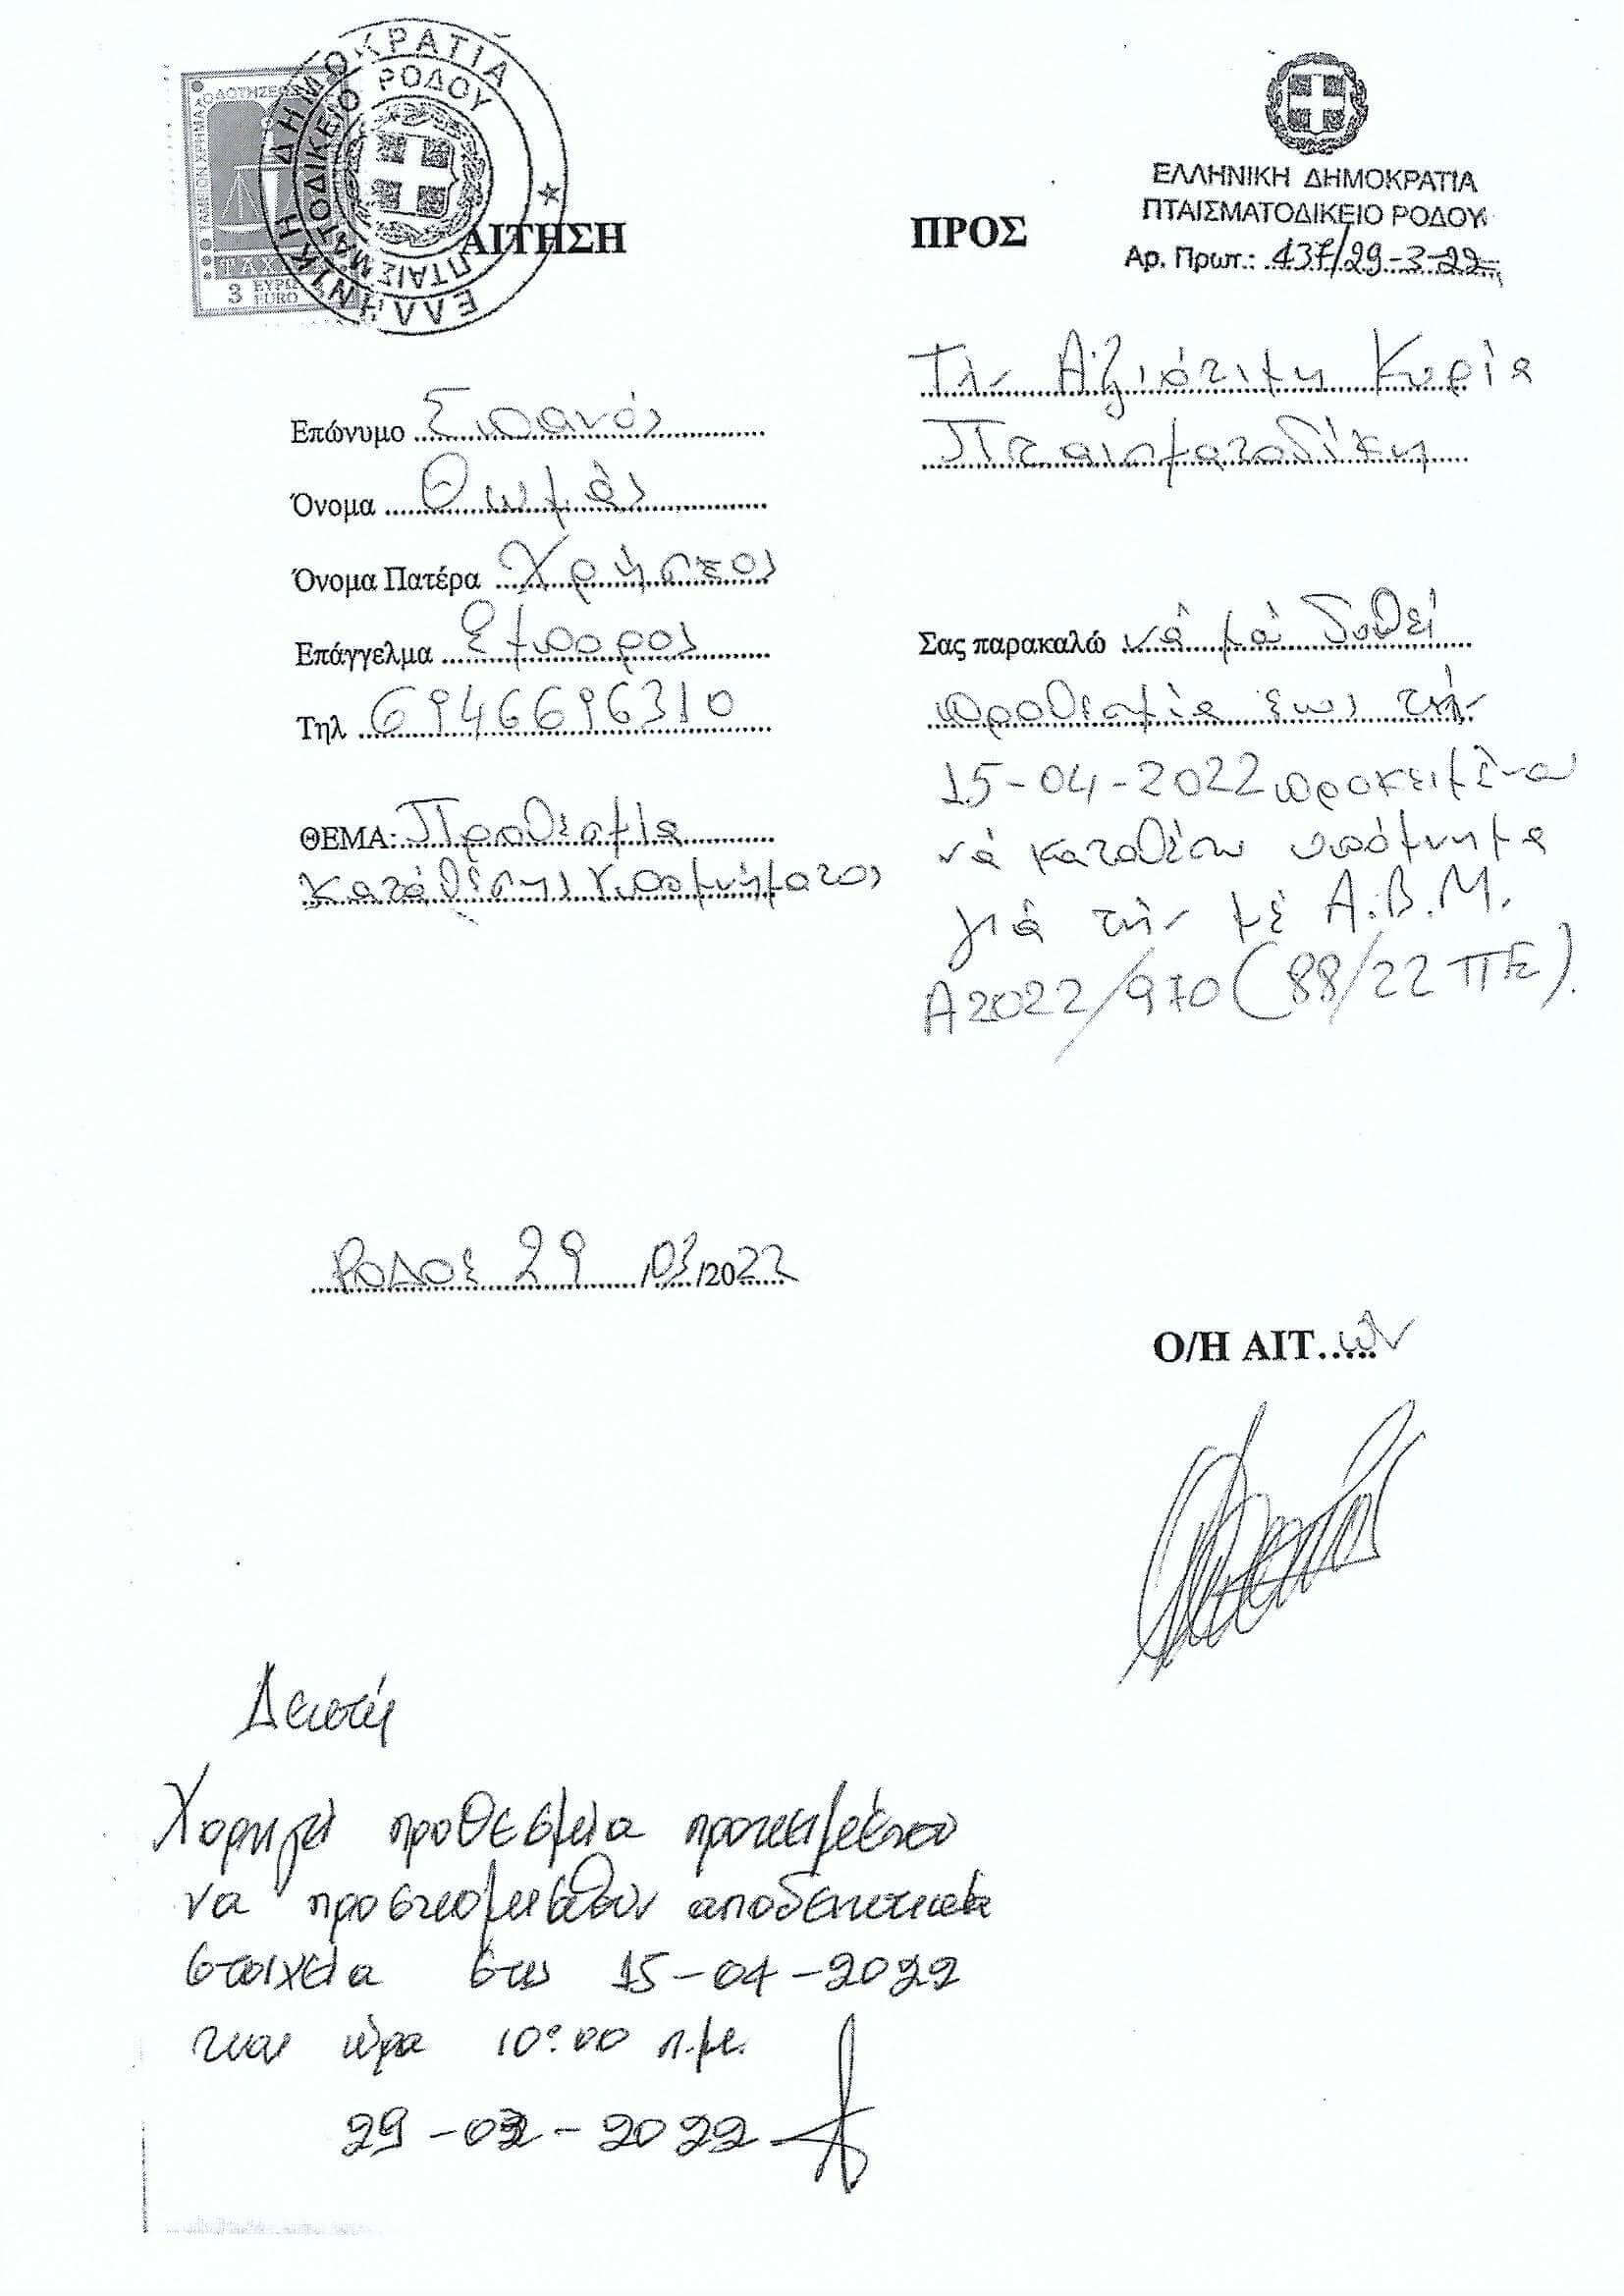 ΕΛΛΗΝΙΚΗ ΔΗΜΟΚΡΑΤΙΑ
ΠΤΑΙΣΜΑΤΟΔΙΚΕΙΟ ΡΟΔΟΥ
ΤΑΜΕΙΟΝ ΧΡΗΜΑΤΟΔΟΤΗΣΕΩΣ
3 ΕΥΡΩ
EURO
ΑΙΤΗΣΗ
Επώνυμο Σιπανός
Όνομα Θωμάς
Όνομα Πατέρα Χρήστος
Επάγγελμα Έμπορος
Τηλ 6946696310
ΘΕΜΑ: Προθεσμία
κατάθεσης υπομνήματος
ΕΛΛΗΝΙΚΗ ΔΗΜΟΚΡΑΤΙΑ
ΠΤΑΙΣΜΑΤΟΔΙΚΕΙΟ ΡΟΔΟΥ
ΠΡΟΣ
Αρ. Πρωτ.: 437/29-3-22
Τήν Αξιότιμη Κυρία
Πταισματοδίκη
Σας παρακαλώ νά μού δοθεί
προθεσμία έως τήν
15-04-2022 προκειμένου
νά καταθέσω υπόμνημα
γιά τήν μέ Α.Β.Μ.
Α2022/970 (88/22 ΠΕ).
Ρόδος 29/03/2022
Ο/Η ΑΙΤ.ών
Δεκτή
Χορηγεί προθεσμεία προκειμένου
να προσκομισθούν αποδεικτικά
στοιχεία στις 15-04-2022
και ώρα 10:00 π.μ.
29-03-2022